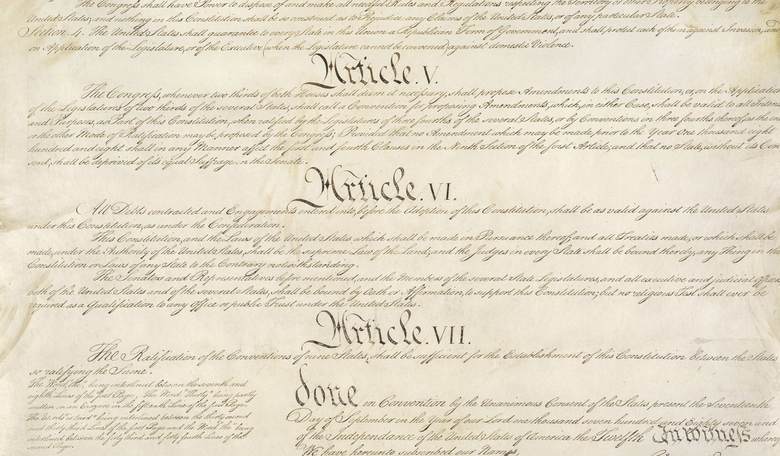 The Congress shall have Power to dispose of and make all needful Rules and Regulations respecting the Territory or other Property belonging to the
United States; and nothing in this Constitution shall be so construed as to Prejudice any Claims of the United States, or of any particular State.
Section. 4. The United States shall guarantee to every State in this Union a Republican Form of Government, and shall protect each of them against Invasion; and
on Application of the Legislature, or of the Executive (when the Legislature cannot be convened) against domestic Violence.
Article. V.
The Congress, whenever two thirds of both Houses shall deem it necessary, shall propose Amendments to this Constitution, or, on the Application
of the Legislatures of two thirds of the several States, shall call a Convention for proposing Amendments, which, in either Case, shall be valid to all Intents
and Purposes, as Part of this Constitution, when ratified by the Legislatures of three fourths of the several States, or by Conventions in three fourths thereof, as the one
or the other Mode of Ratification may be proposed by the Congress; Provided that no Amendment which may be made prior to the Year One thousand eight
hundred and eight shall in any Manner affect the first and fourth Clauses in the Ninth Section of the first Article; and that no State, without its Con
sent, shall be deprived of its equal Suffrage in the Senate.
Article. VI.
All Debts contracted and Engagements entered into, before the Adoption of this Constitution, shall be as valid against the United States
under this Constitution, as under the Confederation.
This Constitution, and the Laws of the United States which shall be made in Pursuance thereof; and all Treaties made, or which shall be
made, under the Authority of the United States, shall be the supreme Law of the Land; and the Judges in every State shall be bound thereby, any Thing in the
Constitution or Laws of any State to the Contrary notwithstanding.
The Senators and Representatives before mentioned, and the Members of the several State Legislatures, and all executive and judicial Officers,
both of the United States and of the several States, shall be bound by Oath or Affirmation, to support this Constitution; but no religious Test shall ever be
required as a Qualification to any Office or public Trust under the United States.
Article. VII.
The Ratification of the Conventions of nine States, shall be sufficient for the Establishment of this Constitution between the States
so ratifying the Same.
The Word, "the," being interlined between the seventh and
eighth Lines of the first Page, The Word "Thirty" being partly
written on an Erazure in the fifteenth Line of the first Page,
The Words "is tried" being interlined between the thirty second
and thirty third Lines of the first Page and the Word "the" being
interlined between the forty third and forty fourth Lines of the
second Page.
done in Convention by the Unanimous Consent of the States present the Seventeenth
Day of September in the Year of our Lord one thousand seven hundred and Eighty seven and
of the Independance of the United States of America the Twelfth In Witness whereof
We have hereunto subscribed our Names,